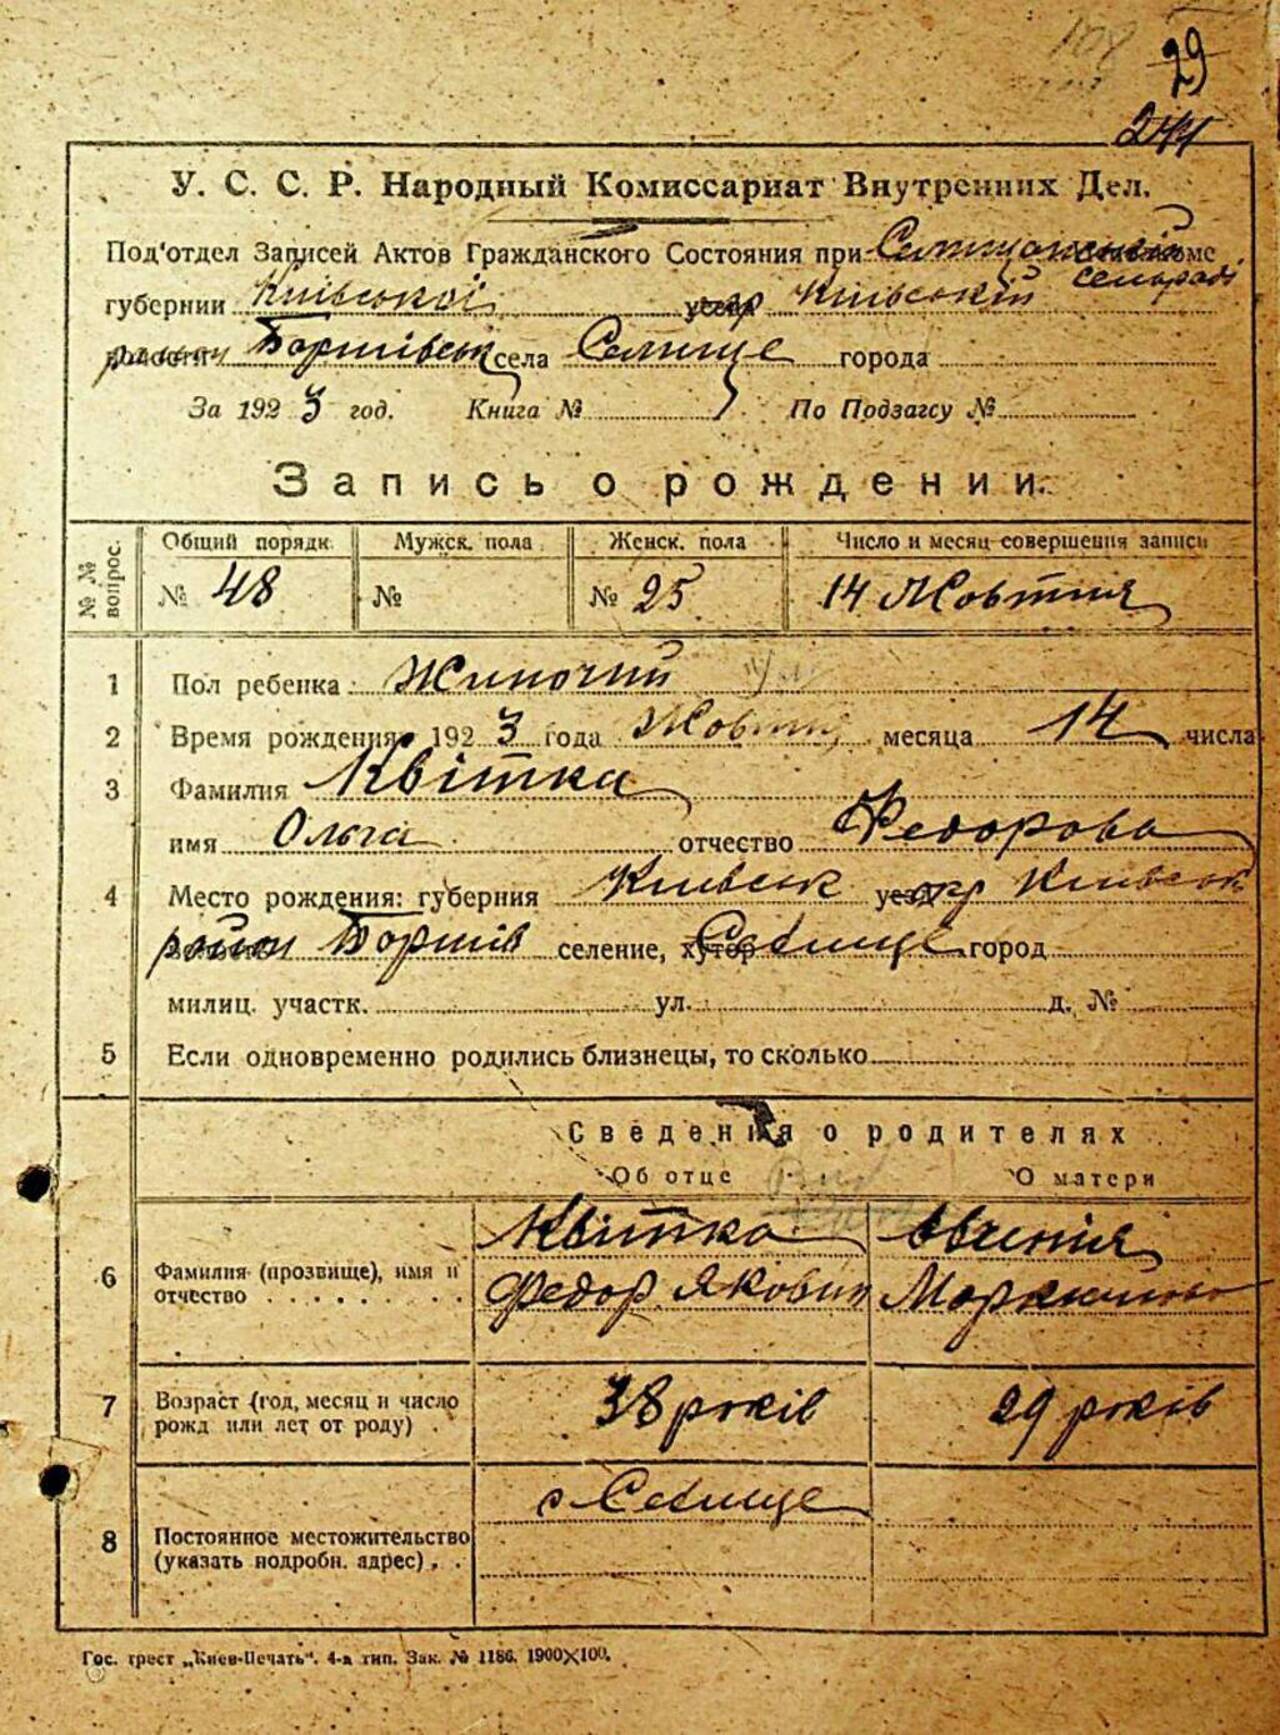 29
244
У. С. С. Р. Народный Комиссариат Внутренних Дел.
Под'отдел Записей Актов Гражданского Состояния при сельраді
губернии Київської Київській
Баришівськ села Селище города
За 1923 год. Книга № По Подзагсу №
Запись о рождении.
№ № вопрос. Общий порядк. Мужск. пола Женск. пола Число и месяц совершения записи
№ 48 № № 25 14 Жовтня
1 Пол ребенка Жиночий
2 Время рождения 1923 года Жовтня месяца 14 числа
3 Фамилия Квітка
имя Ольга отчество Федорова
4 Место рождения: губерния Київськ окр Київськ
район Бориспів селение, хутор Селище город
милиц. участк. ул. д. №
5 Если одновременно родились близнецы, то сколько
Сведения о родителях
Об отце О матери
6 Фамилия (прозвище), имя и отчество Квітка Федор Якович Євгенія
7 Возраст (год, месяц и число рожд или лет от роду) 38 років 29 років
8 Постоянное местожительство (указать подробн. адрес) с Селище
Гос. трест „Киев-Печать“. 4-я тип. Зак. № 1186. 1900×100.